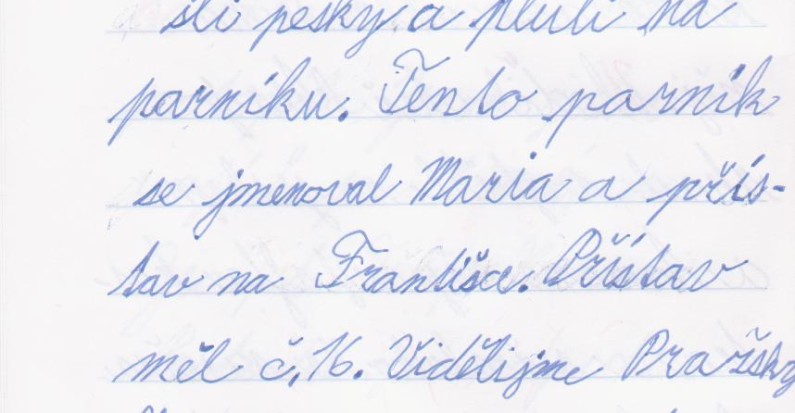 šli pesky a pluli na
parníku. Tento parník
se jmenoval Maria a přís-
tav na Františce. Přístav
měl č. 16. Viděli jme Pražský